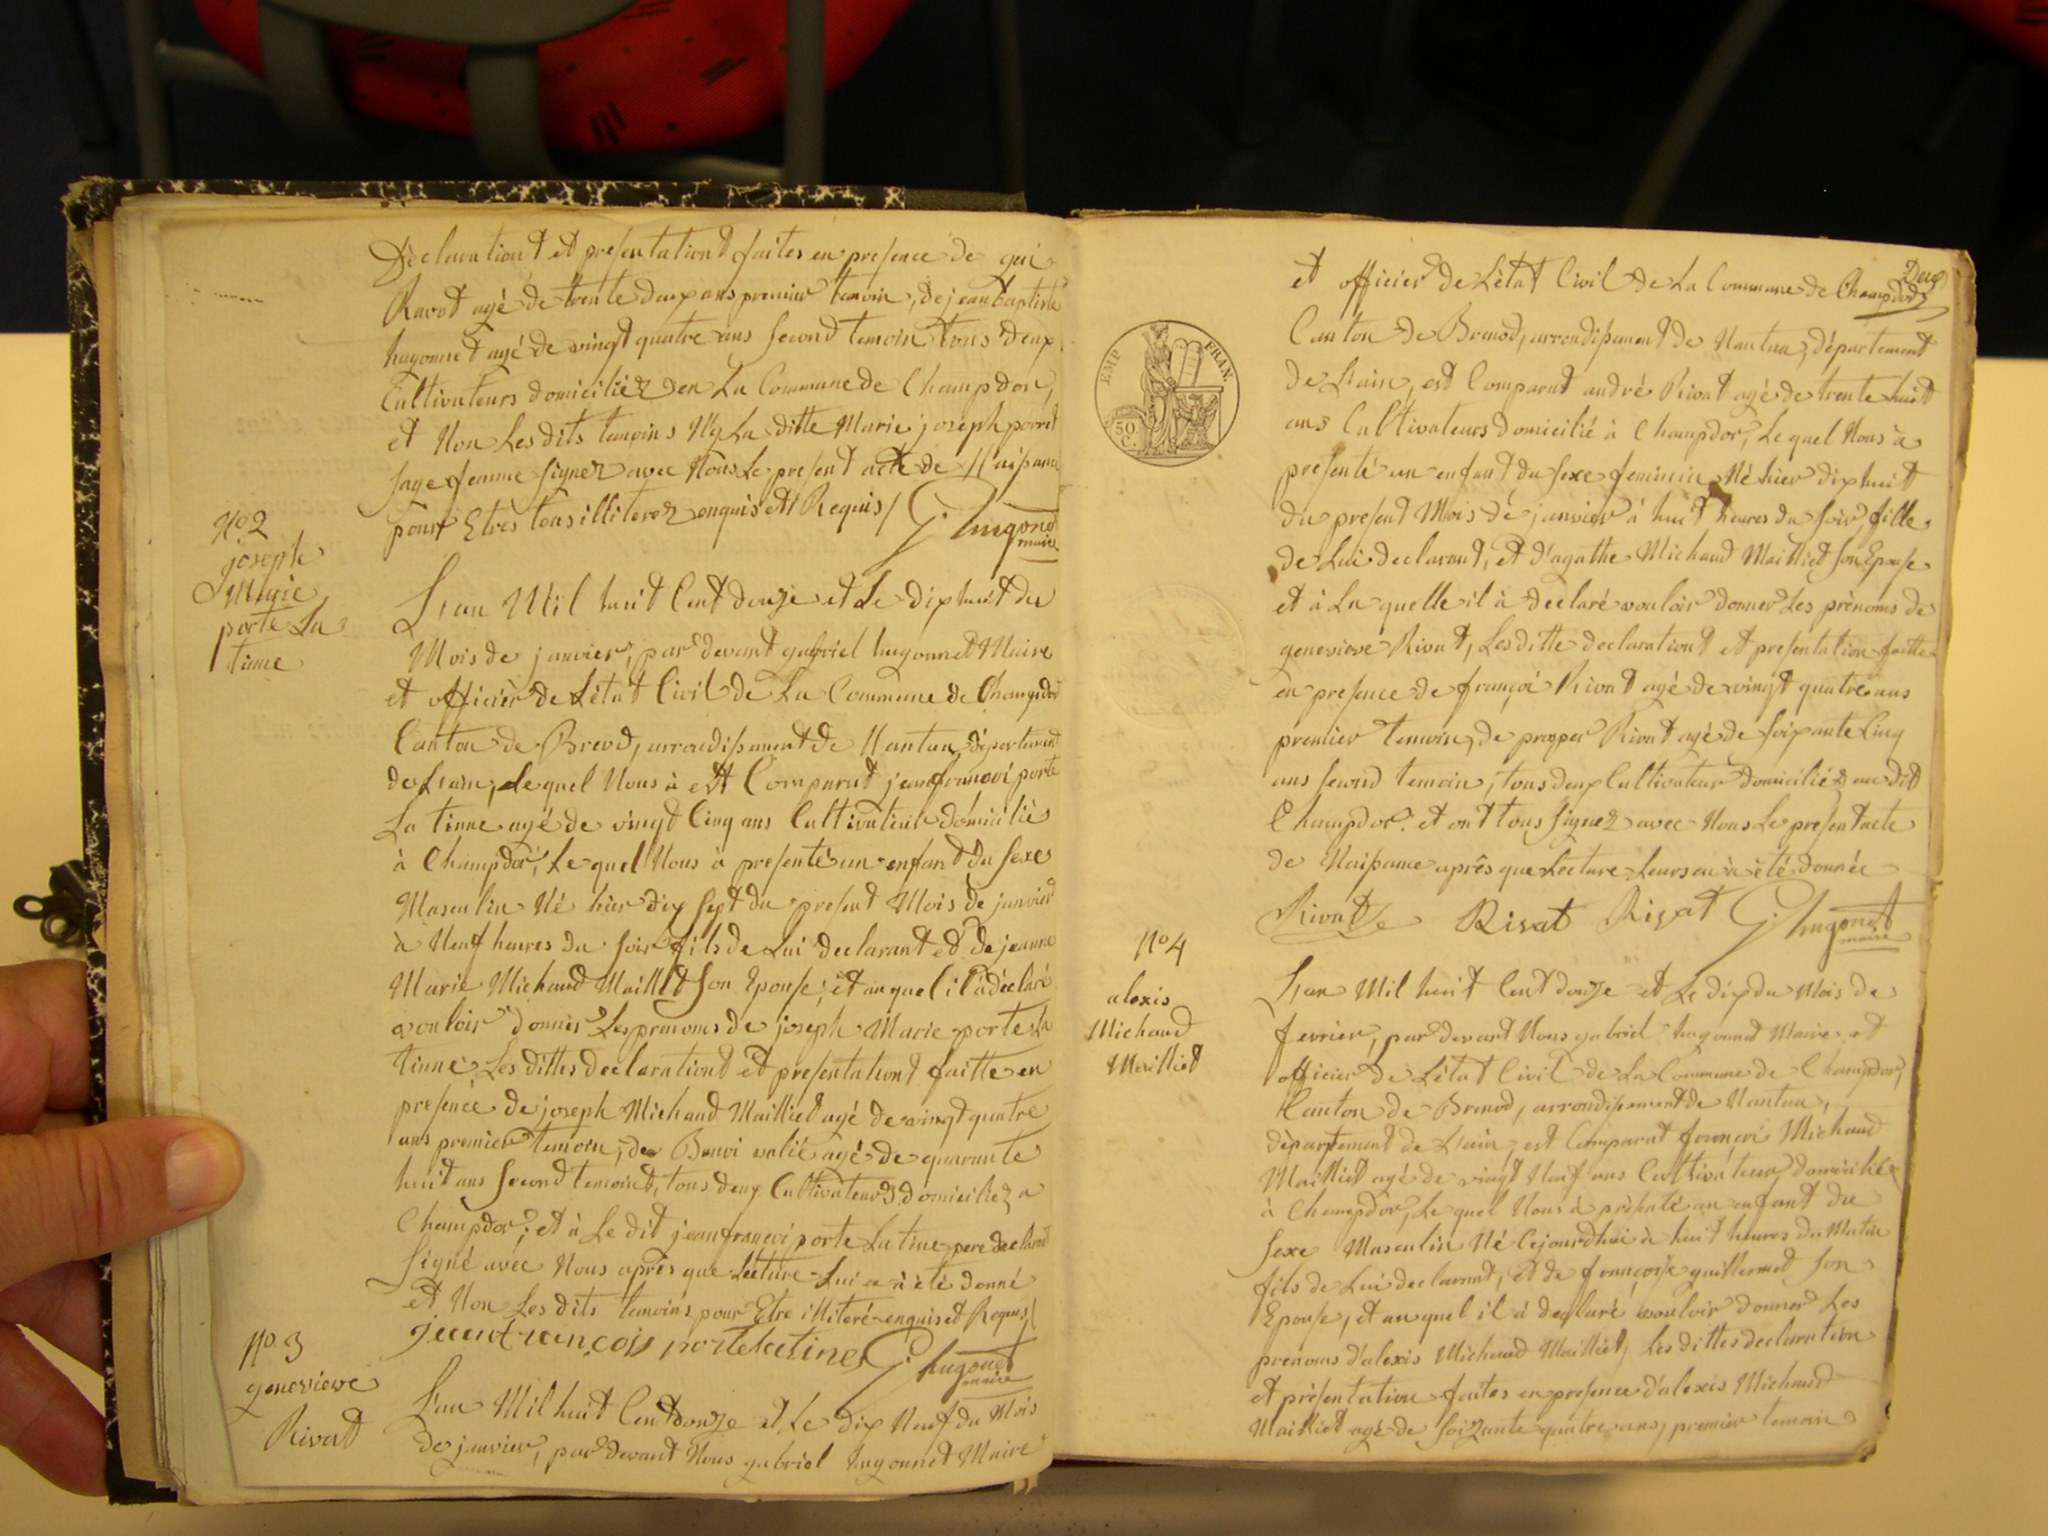 Déclarationt et presentationt faites en presence de gui
Ravot agé de trente deux ans premier temoin, de jean baptiste
hugonnet agé de vingt quatre ans second temoin tous deux
Cultivateurs domiciliéz en La Commune de Champdor,
et Non Les dits temoins Ny La ditte Marie joseph
sage femme signez avec Nous Le present acte de Naissance
pour Etres tous illiterez enquis et Requis / G. hugonet
maire
No 2
joseph
Marie
porte La
tinne
L'an Mil huit Cent douze et Le dix huit du
Mois de janvier, par devant gabriel hugonnet Maire
et officier de L'état Civil de La Commune de Champdor
Canton de Brenod, arrondissement de Nantua, département
de L'ain, Le quel Nous à est Comparut jean françoi porte
La tinne agé de vingt Cinq ans Cultivateur domicilié
à Champdor, Le quel Nous à presenté un enfant du sexe
Masculin Né hier dix sept du present Mois de janvier
à Neuf heures du soir fils de Lui declarant et de jeanne
Marie Michaud Maillet son Epouse, et au quel il à déclaré
vouloir donner Les prenoms de joseph Marie porte La
tinne Les dittes declarationt et presentationt faitte en
presence de joseph Michaud Mailliet agé de vingt quatre
ans premier temoin, de agé de quarante
huit ans second temoint, tous deux Cultivateurs domiciliez a
Champdor, et à Le dit jean françoi porte La tine pere declarant
signé avec Nous après que Lecture Lui a à été donné
et Non Les dits temoins pour Etre illiteré enquis et Requis /
jean françois portelatine G. hugonet
maire
No 3
genevieve
Rivat
L'an Mil huit Cent douze et Le dix Neuf du Mois
de janvier, par devant Nous gabriel hugonnet Maire
Deux
et officier de L'état Civil de La Commune de Champdor
Canton de Brenod, arrondissement de Nantua, département
de L'ain, est Comparut andré Rivat agé de trente huit
ans Cultivateurs domicilié à Champdor, Le quel Nous à
presenté un enfant du sexe feminin Né hier dix huit
du present Mois de janvier à huit heures du soir, fille
de Lui declarant, et d'agathe Michaud Mailliet son Epouse
et à La quelle il à declaré vouloir donner Les prénoms de
genevieve Rivat, Les ditte declarationt et presentation faitte
en presence de françoi Rivat agé de vingt quatre ans
premier temoin, de prosper Rivat agé de soixante Cinq
ans second temoin, tous deux Cultivateur domiciliéz au dit
Champdor. et ont tous signez avec Nous Le present acte
de Naissance après que Lecture Leurs en à été donnée
Rivat Rivat Rivat G. hugonet
maire
EMP. FRAN.
50
C.
No 4
alexis
Michaud
Mailliet
L'an Mil huit Cent douze et Le dix du Mois de
fevrier, par devant Nous gabriel hugonnet Maire et
officier de L'état Civil de La Commune de Champdor,
Canton de Brenod, arrondissement de Nantua,
département de L'ain, est Comparut françoi Michaud
Mailliet agé de vingt Neuf ans Cultivateur domicilié
à Champdor, Le quel Nous à présenté un enfant du
sexe Masculin Né Cejourdhui à huit heures du Matin
fils de Lui declarant, et de françoise guillermet son
Epouse, et au quel il à declaré vouloir donner Les
prenoms d'alexis Michaud Mailliet, Les dittes declaration
et présentation faites en presence d'alexis Michaud
Mailliet agé de soizante quatre ans, premier temoin